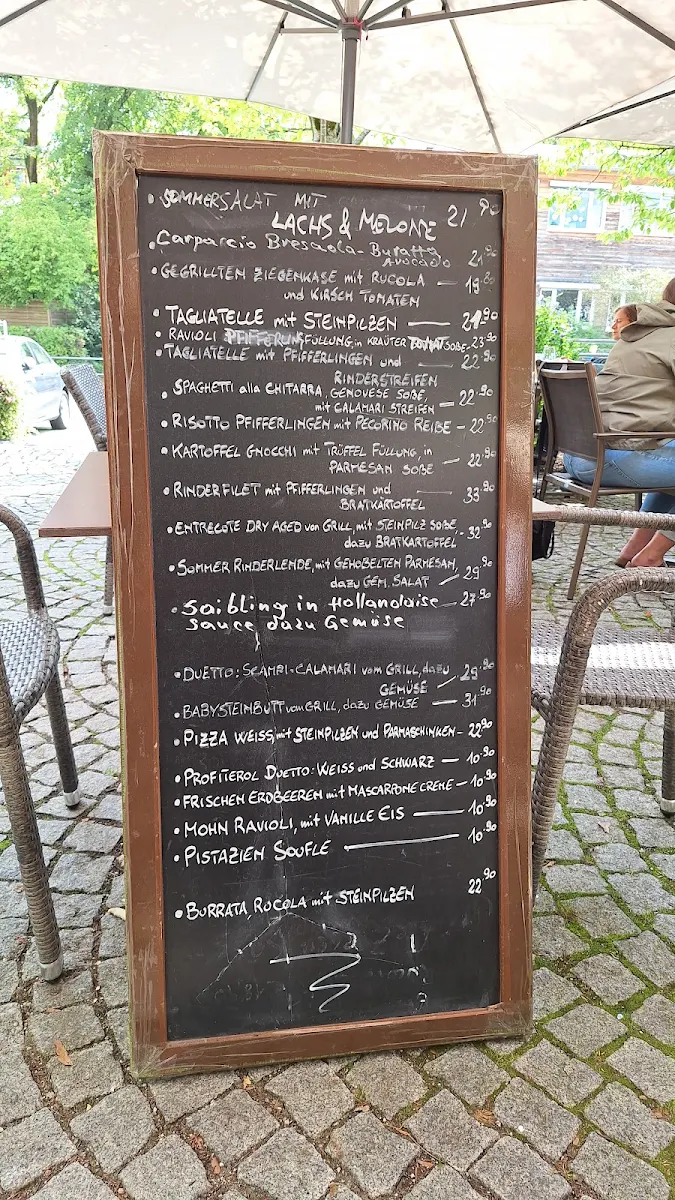 • SOMMERSALAT MIT
LACHS & MELONE 21 90
• Carpaccio Bresaola-Buratta
Avocado 21.90
• GEGRILLTEN ZIEGENKASE mit RUCOLA — 19.80
und KIRSCH TOMATEN
• TAGLIATELLE mit STEINPILZEN — 21.90
• RAVIOLI PFIFFERLING FÜLLUNG, in KRÄUTER SOßE - 23.90
• TAGLIATELLE mit PFIFFERLINGEN und — 22.90
RINDERSTREIFEN
• SPAGHETTI alla CHITARRA, GENOVESE SOßE,
mit CALAMARI STREIFEN — 22.90
• RISOTTO PFIFFERLINGEN mit PECORINO REIBE — 22.90
• KARTOFFEL GNOCCHI mit TRÜFFEL FÜLLUNG, in
PARMESAN SOßE — 22.90
• RINDERFILET mit PFIFFERLINGEN und — 33.90
BRATKARTOFFEL
• ENTRECOTE DRY AGED von GRILL, mit STEINPILZ SOßE,
dazu BRATKARTOFFEL - 32.90
• SOMMER RINDERLENDE, mit GEHOBELTEN PARMESAN,
dazu GEM. SALAT — 29.90
• Saibling in Hollandaise — 27.90
Sauce, dazu Gemüse
• DUETTO: SCAMPI-CALAMARI vom GRILL, dazu
GEMÜSE — 29.90
• BABYSTEINBUTT vom GRILL, dazu GEMÜSE — 31.90
• PIZZA WEISS, mit STEINPILZEN und PARMASCHINKEN - 22.90
• PROFITEROL DUETTO: WEISS und SCHWARZ — 10.90
• FRISCHEN ERDBEEREN mit MASCARPONE CREME — 10.90
• MOHN RAVIOLI, mit VANILLE EIS — 10.90
• PISTAZIEN SOUFLE — 10.90
• BURRATA, RUCOLA mit STEINPILZEN 22.90